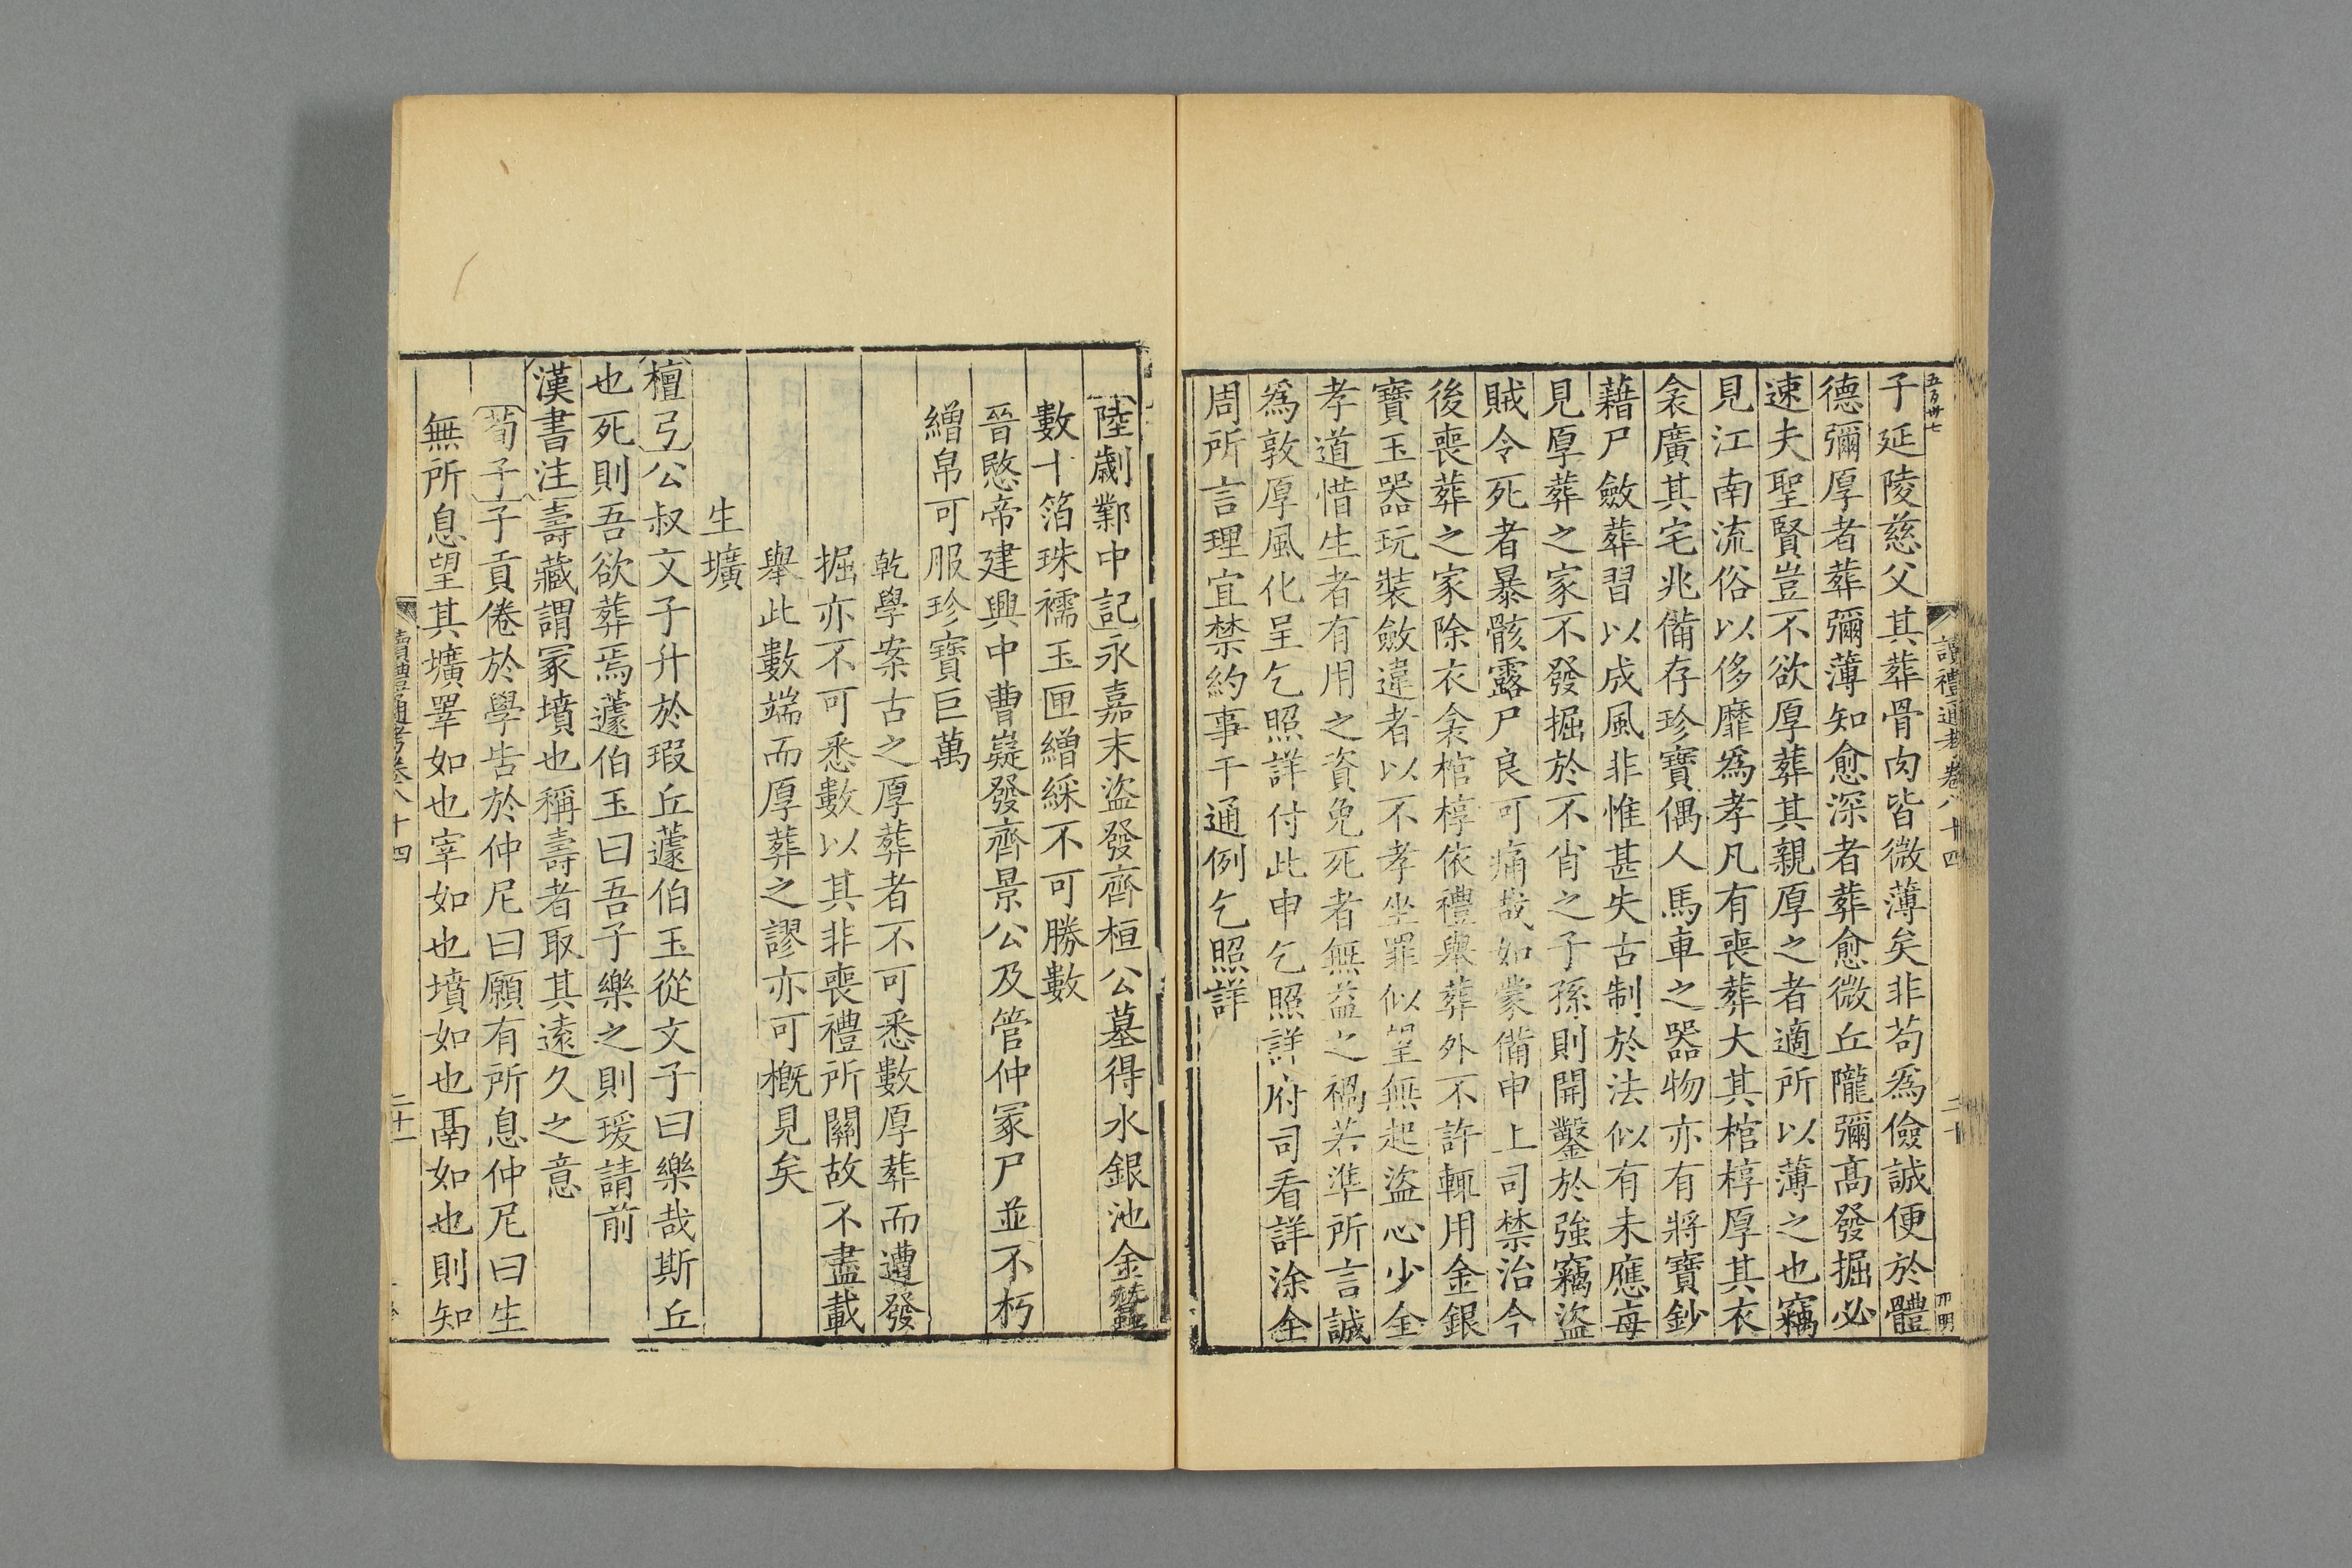 五百卅七
讀禮通考卷八十四 二十
子延陵慈父其葬骨肉皆微薄矣非苟爲儉誠便於體
德彌厚者葬彌薄知愈深者葬愈微丘隴彌高發掘必
速夫聖賢豈不欲厚葬其親厚之者適所以薄之也竊
見江南流俗以侈靡爲孝凡有喪葬大其棺椁厚其衣
衾廣其宅兆備存珍寶偶人馬車之器物亦有將寶鈔
藉尸斂葬習以成風非惟甚失古制於法似有未應每
見厚葬之家不發掘於不肖之子孫則開鑿於強竊盜
賊令死者暴骸露尸良可痛哉如蒙備申上司禁治今
後喪葬之家除衣衾棺椁依禮舉葬外不許輒用金銀
寶玉器玩裝斂違者以不孝坐罪似望無起盜心少全
孝道惜生者有用之資免死者無益之禍若準所言誠
爲敦厚風化呈乞照詳付此申乞照詳府司看詳涂全
周所言理宜禁約事干通例乞照詳
陸劌鄴中記永嘉末盜發齊桓公墓得水銀池金蠶
數十箔珠襦玉匣繒綵不可勝數
晉愍帝建興中曹嶷發齊景公及管仲冢尸並不朽
繒帛可服珍寶巨萬
乾學案古之厚葬者不可悉數厚葬而遭發
掘亦不可悉數以其非喪禮所關故不盡載
舉此數端而厚葬之謬亦可概見矣
生壙
檀弓公叔文子升於瑕丘蘧伯玉從文子曰樂哉斯丘
也死則吾欲葬焉蘧伯玉曰吾子樂之則瑗請前
漢書注壽藏謂冢墳也稱壽者取其遠久之意
荀子子貢倦於學告於仲尼曰願有所息仲尼曰生
無所息望其壙睪如也宰如也墳如也鬲如也則知
讀禮通考卷八十四 二十一